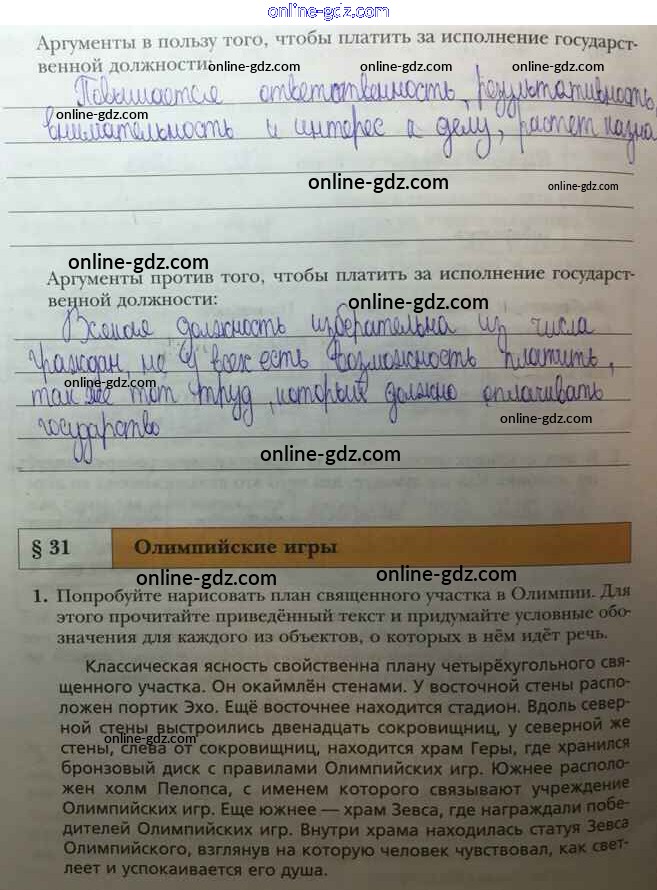 online-gdz.com
Аргументы в пользу того, чтобы платить за исполнение государст-
венной должности:
online-gdz.com online-gdz.com online-gdz.com
Повышается ответственность, результативность,
внимательность и интерес к делу, растет казна
online-gdz.com online-gdz.com
online-gdz.com
Аргументы против того, чтобы платить за исполнение государст-
венной должности:
online-gdz.com
Всякая должность избирательна из числа
граждан, не у всех есть возможность платить,
online-gdz.com
так же тот труд, который должно оплачивать
online-gdz.com
государство
online-gdz.com
§ 31 Олимпийские игры
online-gdz.com online-gdz.com
1. Попробуйте нарисовать план священного участка в Олимпии. Для
этого прочитайте приведённый текст и придумайте условные обо-
значения для каждого из объектов, о которых в нём идёт речь.
Классическая ясность свойственна плану четырёхугольного свя-
щенного участка. Он окаймлён стенами. У восточной стены распо-
ложен портик Эхо. Ещё восточнее находится стадион. Вдоль север-
ной стены выстроились двенадцать сокровищниц, у северной же
online-gdz.com
стены, слева от сокровищниц, находится храм Геры, где хранился
бронзовый диск с правилами Олимпийских игр. Южнее располо-
жен холм Пелопса, с именем которого связывают учреждение
Олимпийских игр. Еще южнее — храм Зевса, где награждали побе-
дителей Олимпийских игр. Внутри храма находилась статуя Зевса
Олимпийского, взглянув на которую человек чувствовал, как свет-
леет и успокаивается его душа.